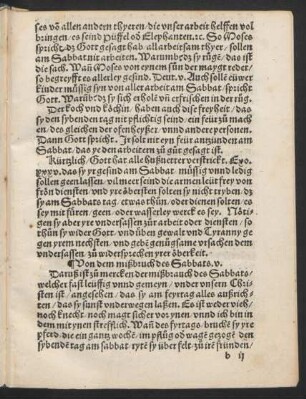 ses võ allen andern thyeren/ die vnser arbeit helffen vol
bringen/ es seind Püffel od Elephanten.ꝛc. So Moses
spricht/ dz Gott gesagt hab/ all arbeitsam thyer/ sollen
am Sabbat nit arbeiten. Warumb/ dz sy rügē. das ist
die sach. Wañ Moses von eynem sün der maygt redet/
so begreyfft es allerley gesind. Deut. v. Auch sollē eüwer
kinder müssig syn von aller arbeit am Sabbat/ spricht
Gott. Warūb/ dz sy sich erholē vñ erfrischen in der rūg.
Der koch vnd köchin/ haben auch dise freyheit/ das
sy den sybenden tag nit pflichtig seind/ ein feür zū mach
en/ des gleichen der ofenheytzer/ vnnd andere personen.
Dann Gott spricht. Ir solt nit eyn feür anzünden am
Sabbat/ das ye der arbeitern zū gūt gesagt ist.
Kürtzlich/ Gott hat alle hußuetter verstrickt. Exo.
xxxv. das sy ir gesind am Sabbat/ müssig vnnd ledig
sollen geen lassen/ vil meer seind die armen leüt frey von
frōn diensten/ vnd yre öbersten solten sy nicht tryben/ dz
sy am Sabbats tag/ etwas thün/ oder dienen solten/ es
sey mit füren/ geen/ oder wasserley werck es sey. Nöti-
gen sy aber yre vndersassen zū arbeit oder diensten/ so
thün sy wider Gott/ vnd üben gewalt vnd Tyranny ge
gen yrem nechsten/ vnd gebē gnügsame vrsachen dem
vndersassen/ zū widersprechen yrer öberkeit.
¶ Von dem mißbruch des Sabbats. v.
Daruß ist zū mercken der mißbruch des Sabbats/
welcher fast leüffig vnnd gemeyn/ vnder vnsern Chri-
sten ist/ angesehen/ das sy am feyrtag alles außrich-
ten/ das sy sunst vnderwegen lassen. Es ist weder vieh/
noch knecht/ noch magt sicher vor ynen/ vnnd ich bin in
dem mit ynen strefflich. Wañ des fyrtags/ bruchē sy yre
pferd/ die ein gantz wochē/ im pflūg od wagē gezogē/ den
sybendē tag am sabbat/ rytē sy über felt/ zū irē stünden/
b ij